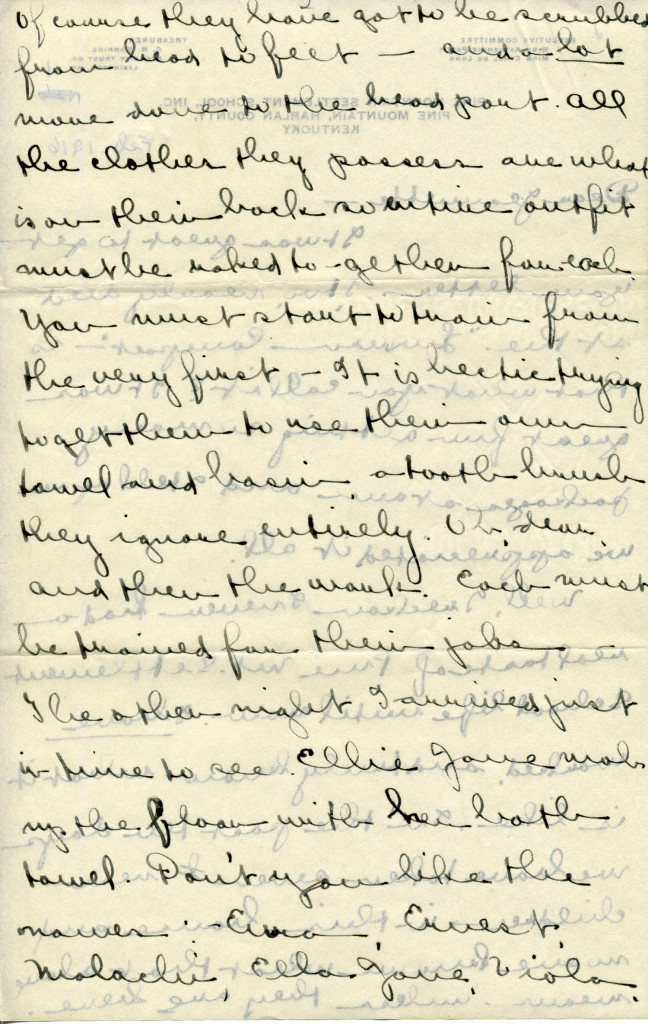 Of course they have got to be scrubbed
from head to feet — and a lot
more done to the head part. All
the clothes they possess are what
is on their back so entire outfit
must be raked to-gether for each.
You must start to train from
the very first — It is hectic trying
to get them to use their own
towel and basin, a tooth brush
they ignore entirely. Oh, dear,
and then the work. Each must
be trained for their jobs —
The other night I arrived just
in time to see Ellie Jane mob
up the floor with her bath
towel. Don't you like the
names :- Emma, Ernest,
Malachi, Ella Jane, Viola.